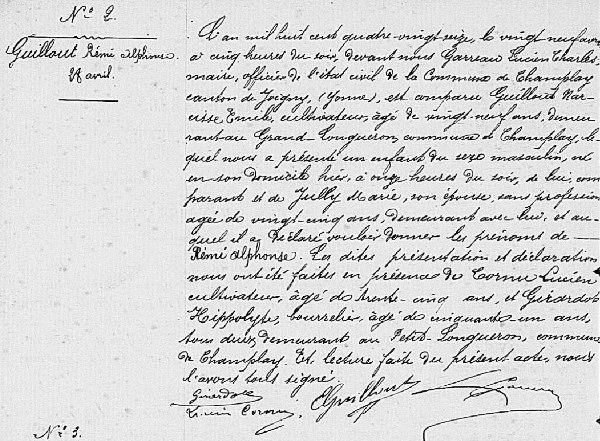 N° 2.
Guillout Rémi Alphonse.
28 avril.
L'an mil huit cent quatre-vingt seize, le vingt neuf avril
à cinq heures du soir, devant nous Garreau Lucien Charles
maire, officier de l'état civil de la Commune de Champlay
canton de Joigny, (Yonne), est comparu Guillout Nar-
cisse Emile, cultivateur, âgé de vingt-neuf ans, demeu
rant au Grand-Longueron, commune de Champlay, le-
quel nous a présenté un enfant du sexe masculin, né
en son domicile hier, à onze heures du soir, de lui, com
parant et de Jully Marie, son épouse, sans profession
agée de vingt-cinq ans, demeurant avec lui, et au-
quel il a déclaré vouloir donner les prénoms de
Rémi Alphonse. Les dites présentation et déclaration
nous ont été faites en présence de Cornu Lucien
cultivateur, âgé de trente-cinq ans, et Girardot
Hippolyte, bourrelier, âgé de cinquante-un ans,
tous deux demeurant au Petit-Longueron, commune
de Champlay. Et lecture faite du présent acte, nous
l'avons tous signé.
Girardot
Lucien Cornu. EGuillout
N° 3.